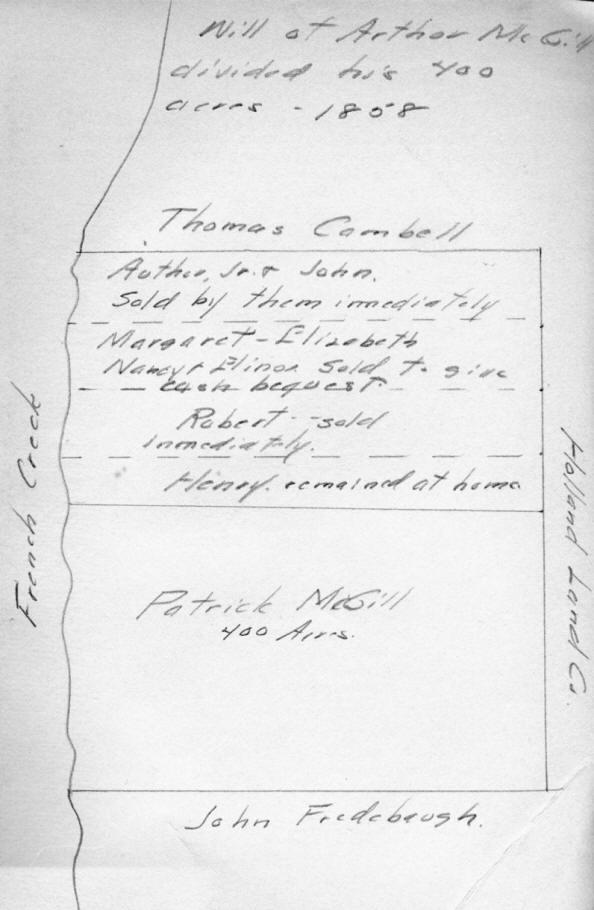 Will of Arthor McGill
divided his 400
acres - 1808
Thomas Cambell
Author, Jr. & John.
Sold by them immediately
Margaret - Elizabeth
Nancy & Elinor Sold to give
cash bequest.
Robert - sold
immediately.
Henry. remained at home
French Creek
Holland Land Co.
Patrick McGill
400 Acres.
John Fredebaugh.